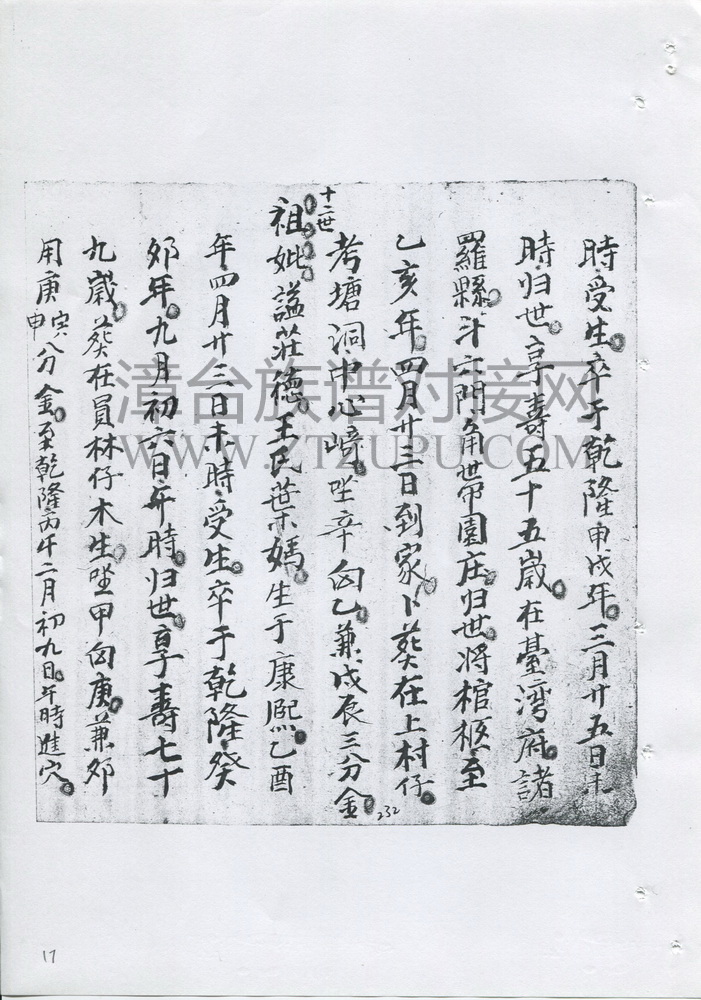 時受生卒于乾隆甲戌年三月廿五日未
時归世享壽五十五歲在臺湾府諸
羅縣斗六門角世帝園庄归世将棺柩至
乙亥年四月廿三日到家卜葬在上村仔
十二世
考塘洞中心崎坐辛向乙兼戊辰三分金
祖妣謚荘德王氏葉媽生于康熙乙酉
年四月廿三日未時受生卒于乾隆癸
夘年九月初六日午時归世享壽七十
九歲葬在員林仔木生坐甲向庚兼夘
用庚寅申八分金至乾隆丙午二月初九日午時進穴
232
17
漳台族谱对接网
WWW.ZTZUPU.COM